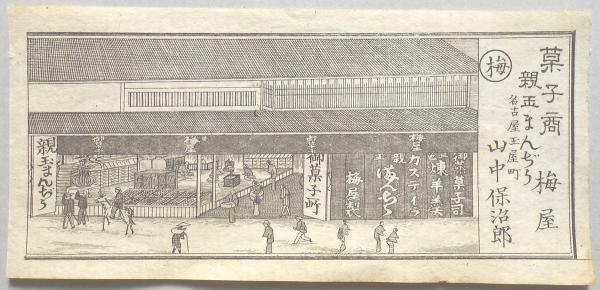 菓子商 梅屋
親玉まんぢう
名古屋玉屋町
山中保治郎
梅
御菓子司
煉羊羹
梅屋
カステイラ
まんぢう
梅屋製
御菓子所
梅屋
親玉まんぢう